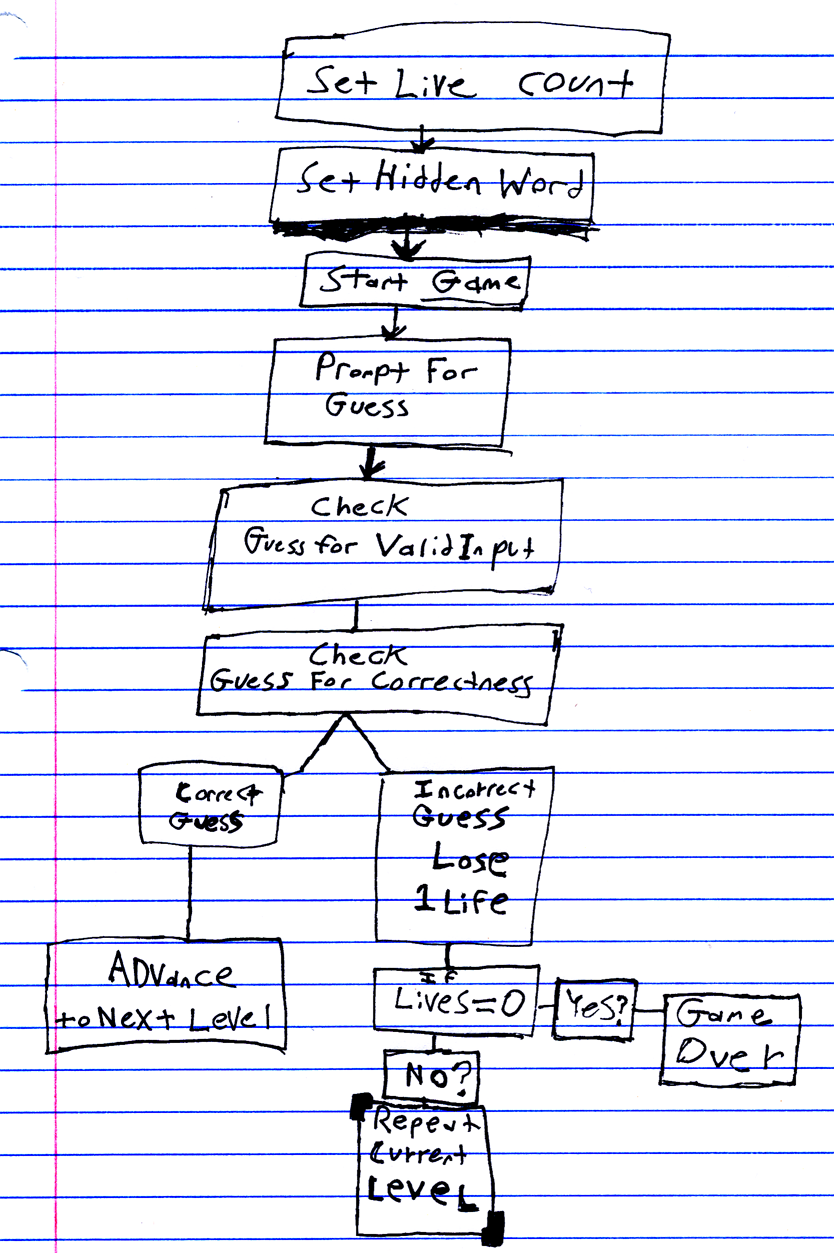 Set Live count
Set Hidden Word
Start Game
Prompt For
Guess
Check
Guess for Valid Input
Check
Guess For Correctness
Correct
Guess
Incorrect
Guess
Lose
1 Life
ADVance
to Next Level
If
Lives=0
Yes?
Game
Over
No?
Repeat
Current
Level